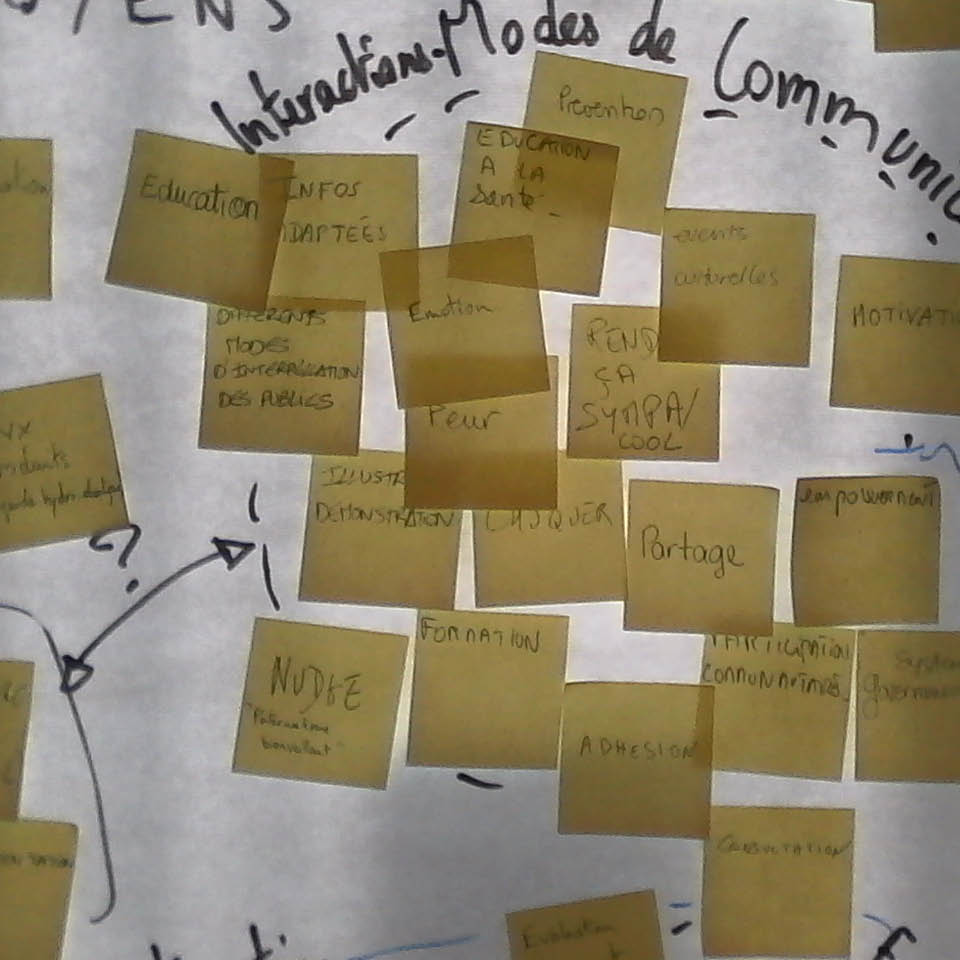 Interactions-Modes de Communic
Prevention
EDUCATION
A LA
Santé
Education
INFOS
ADAPTEÉS
events
culturelles
Emotion
MOTIVATI
DIFFERENTS
MODES
D'INTERPELLATION
DES PUBLICS
REND
ÇA
SYMPA/
COOL
Peur
ILLUSTR
DEMONSTRATION
CHOQUER
Partage
empowerment
?
FORMATION
NUDGE
"Paternalisme
bienveillant"
PARTICIPATION
COMMUNAUTAIRE
System
Gouvernem
ADHESION
CONSULTATION
Evaluation